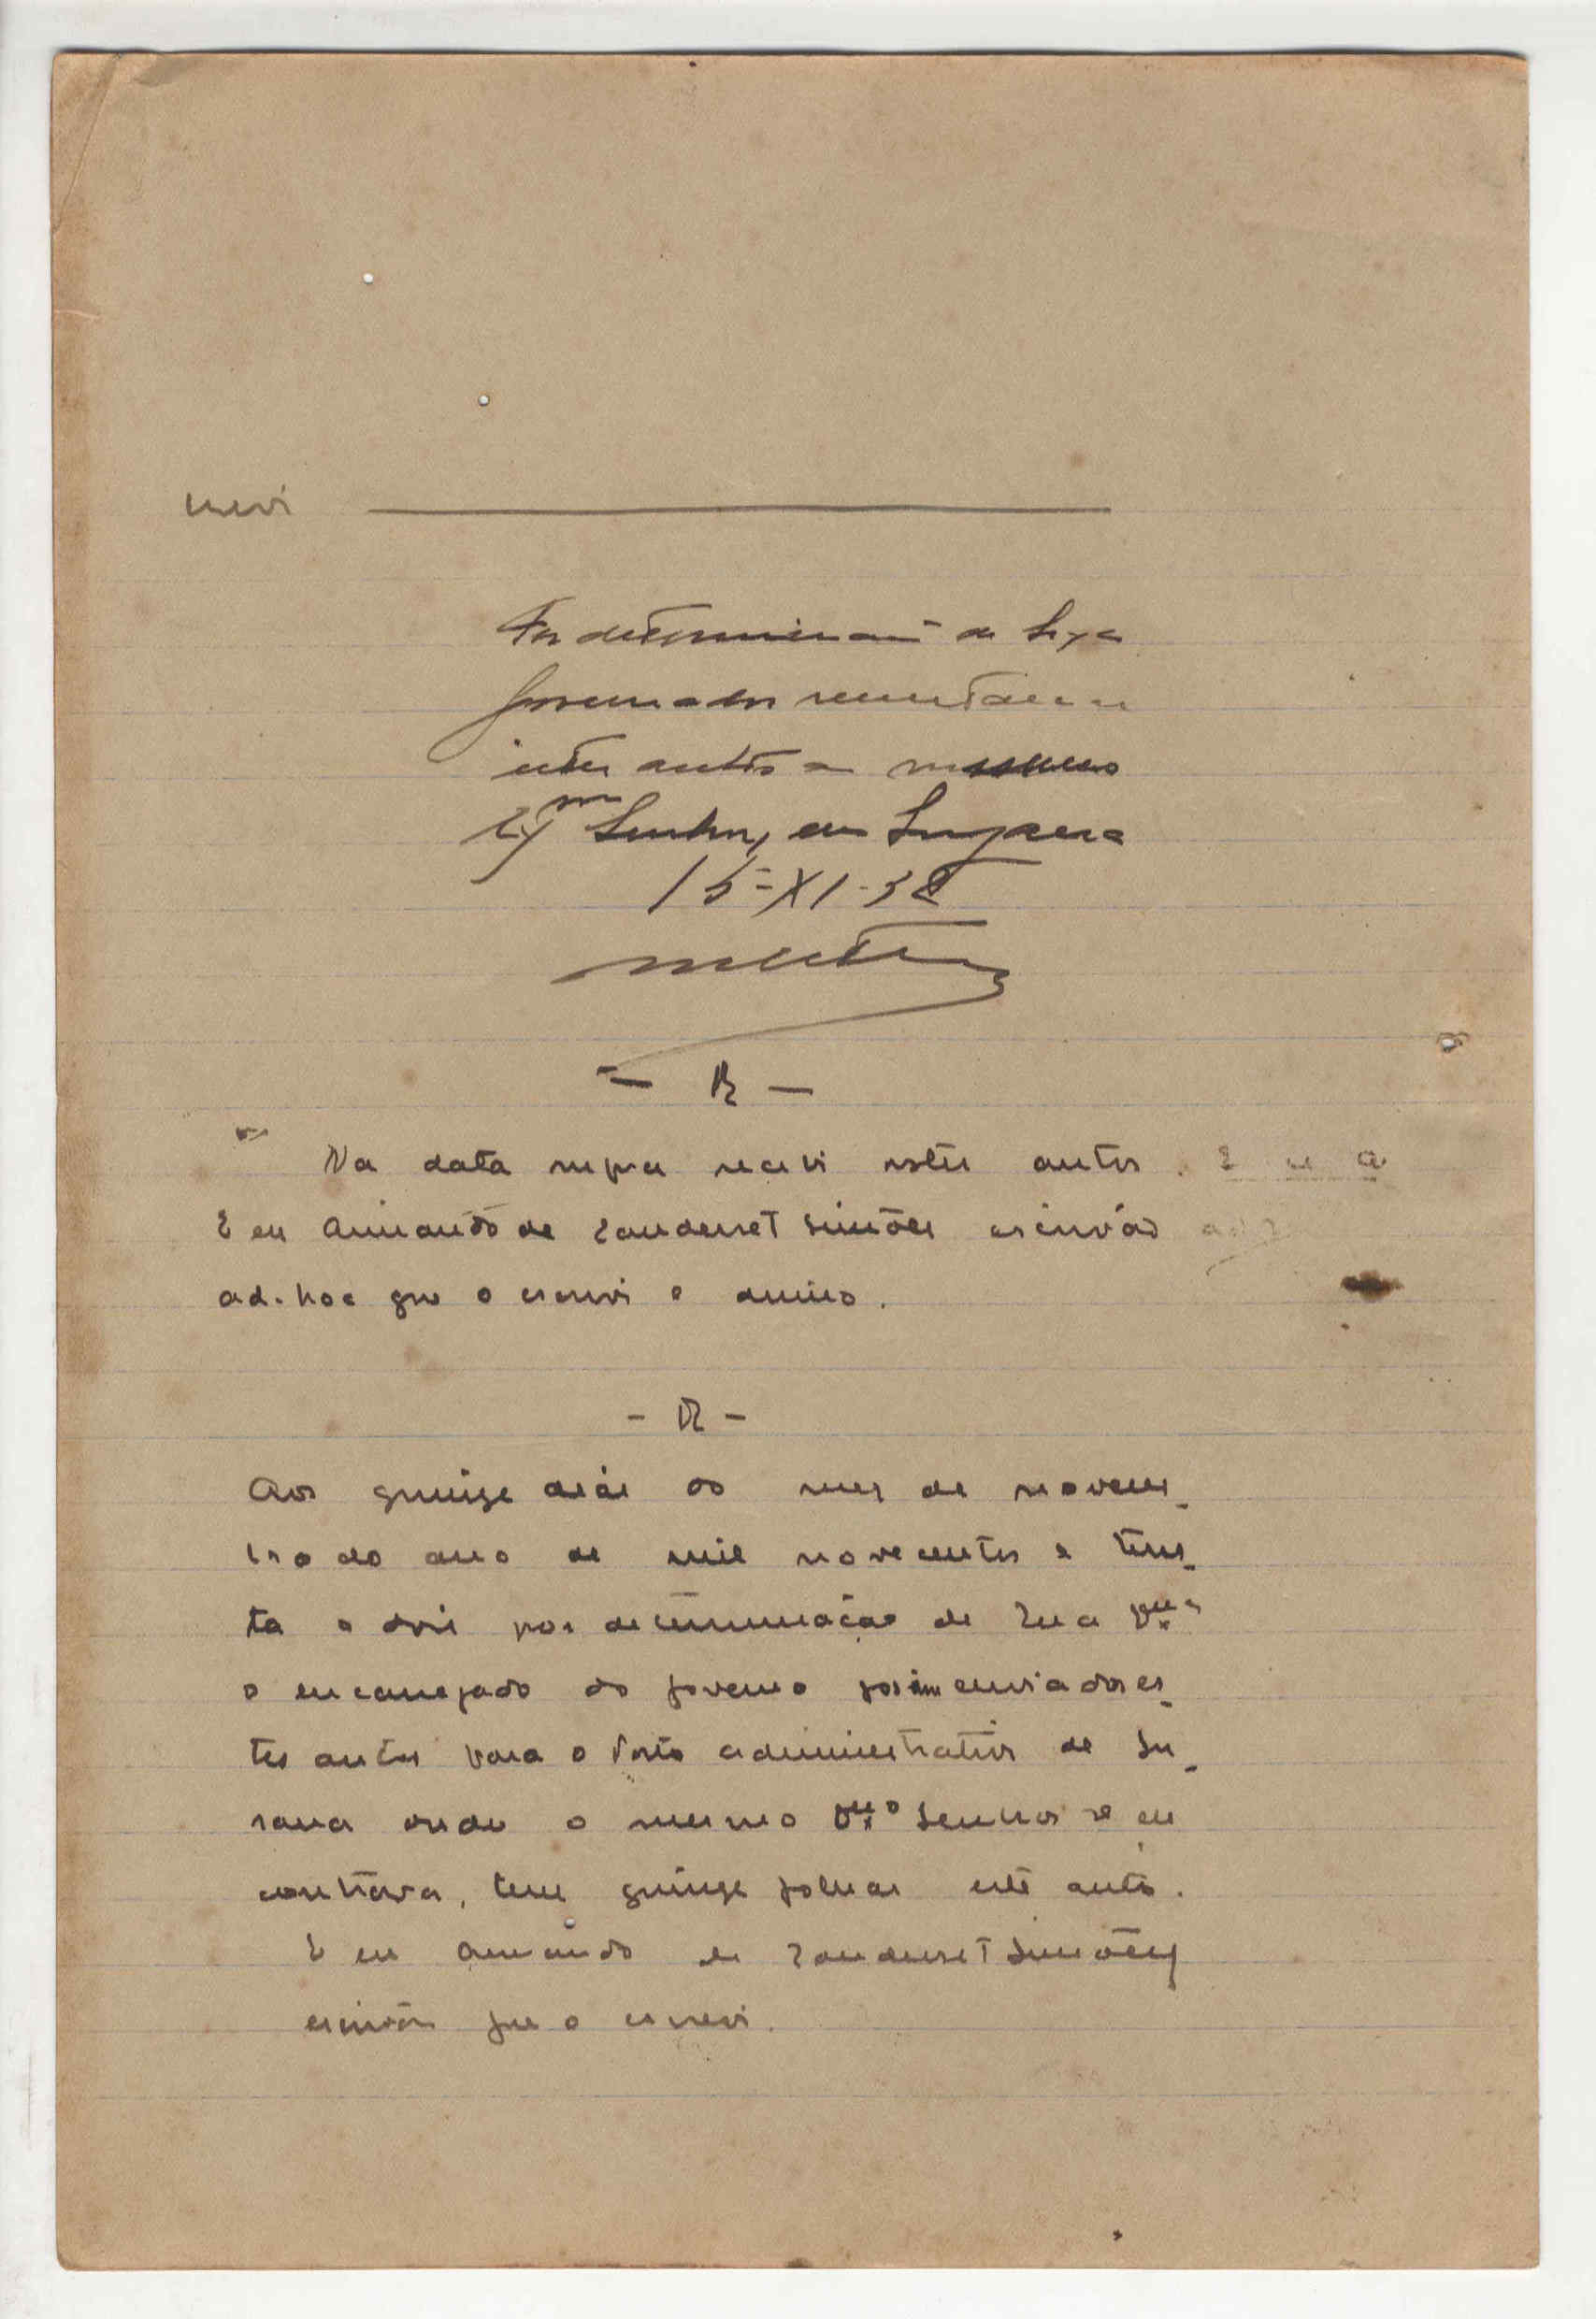 crevi
Por determinação de Sua Exª
Governador remetam-se
estes autos ao mesmo
Exmo Senhor, em
15-XI-32
- R -
Na data supra recebi estes autos.
E eu Armando de Zanderset Simões escrivão
ad-hoc que o escrevi e assino.
- R -
Aos quinze dias do mes de novem-
bro do ano de mil novecentos e trin-
ta e dois por determinação de Sua Exª
o encarregado do Governo foram enviados es-
tes autos para o Posto administrativo de Su-
rana onde o mesmo Exmo Senhor se en
contrava, tem quinze folhas este auto.
E eu Armando de Zanderset Simões
escrivão que o escrevi.